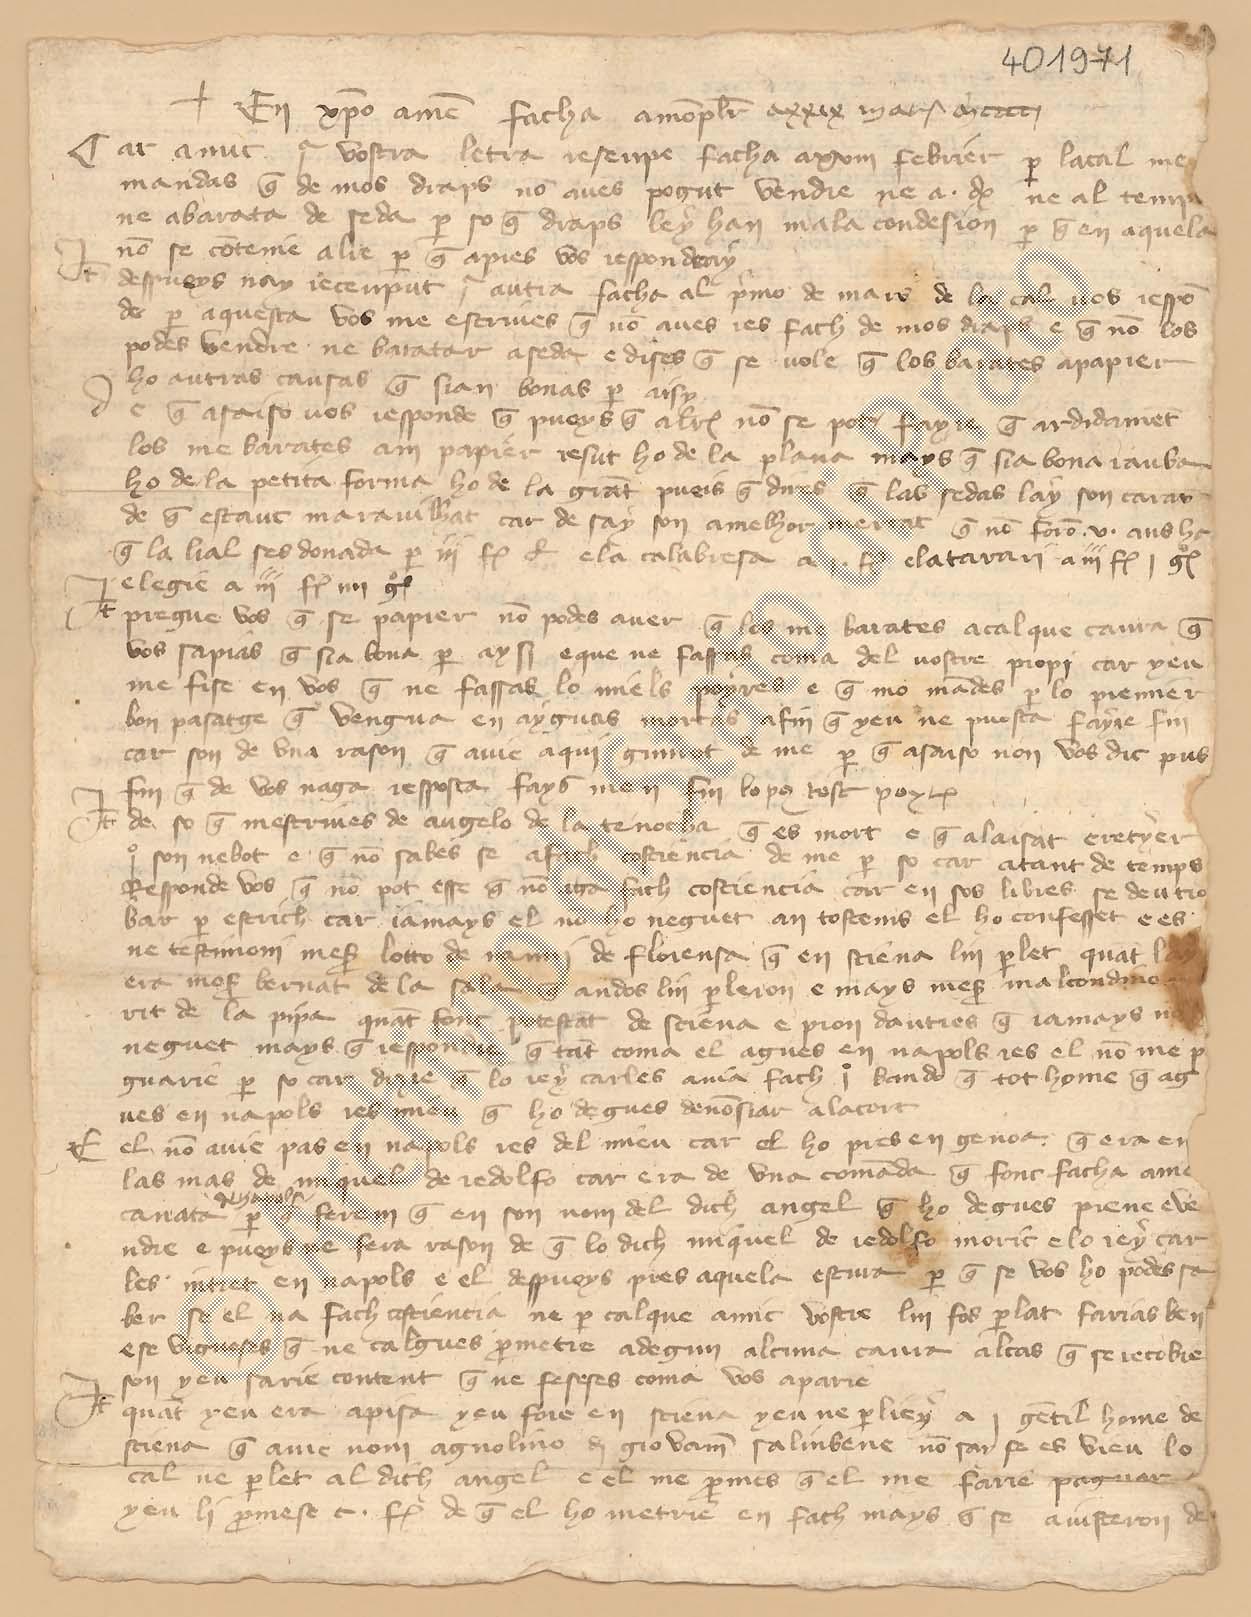 401971
+ En xpo amen facha amonpelr a xxix mars
Car amic j vostra letra reseupe facha a xxvii febrier per lacal me
mandas que de mos draps non aves pogut vendre ne a. ne al temps
ne abarata de seda per so que draps ley han mala condesion per que en aquela
non se contenie alre per que apres vos respondray
It despueys nay receuput j autra facha al primo de mars de la cal vos respon
de per aquesta vos me escrives que non aves res fach de mos draps e que non los
podes vendre ne baratar a seda e dises que se vole que los barates a papier
ho autras causas que sian bonas per aisy
e que asaiso vos responde que pueys que alre non se pot fayre que ardidamet
los me barates am papier resut ho de la plana mays que sia bona rauba
ho de la petita forma ho de la grant pueis que dises que las sedas lay son caras
de que estauc maravilhat car de say son amelhor mercat que non foron .v. ans ha
que la lial ses donada per iii f e la calabresa a f e latarari a iii f j g
e legie a iii f iiii g
It pregue vos que se papier non podes aver que los me barates a calque causa que
vos sapias que sia bona per aysi e que ne fassas coma del vostre propi car yeu
me fise en vos que ne fassas lo miels poyres e que mo mandes per lo premier
bon pasatge que vengua en ayguas mortas afin que yeu ne puesca fayre fin
car son de una rason que avie aqui de me per que asaiso non vos dic pus
fin que de vos naga resposta fays men fin lo pus tost poyres
It de so que mescrives de angelo de la tenocha que es mort e que a laisat eretyer
j son nebot e que non sabes se a fach cosciencia de me per so car atant de temps
Responde vos que non pot esse que non aga fach cosciencia car en sos libres se deu tro
bar per escrich car jamays el no ho neguet an tostems el ho confesset e es
ne testimoni meser lotto de de florensa que en sciena lin parlet quant lay
era moser bernat de la sala andos lin parleron e mays meser
rit de la pipa quant fonc potestat de sciena e pron dautres que jamays no
neguet mays que respondie que tant coma el agues en napols res el non me pa
guarie per so car disie que lo rey carles avia fach j bando que tot home que ag
ues en napols res mieu que ho degues denonsiar a la cort
E el non avie pas en napols res del mieu car el ho pres en genoa que era en
las mas de miquel de redolfo car era de una comanda que fonc facha a me
canata per que ferem que en son nom del dich angel que ho degues prene e ve
ndre e pueys ne fera rason de que lo dich miquel de redolfo moric e lo rey car
les intret en napols e el despueys pres aquela escura per que se vos ho podes sa
ber se el na fach cosciencia ne per calque amic vostre lin fos parlat farias ben
e se vigueses que ne calgues prometre a degun alcuna causa al cas que se recobre
son yeu sarie content que ne feseses coma vos aparie
It quant yeu era a pisa yeu fore en sciena yeu ne parliey a j gentil home de
sciena que avie nom agnolino de giovani salinbene non say se es vieu lo
cal ne parlet al dich angel e el me promes que el me farie paguar
yeu li promese c. f de que el ho metrie en fach mays que se avisteron de